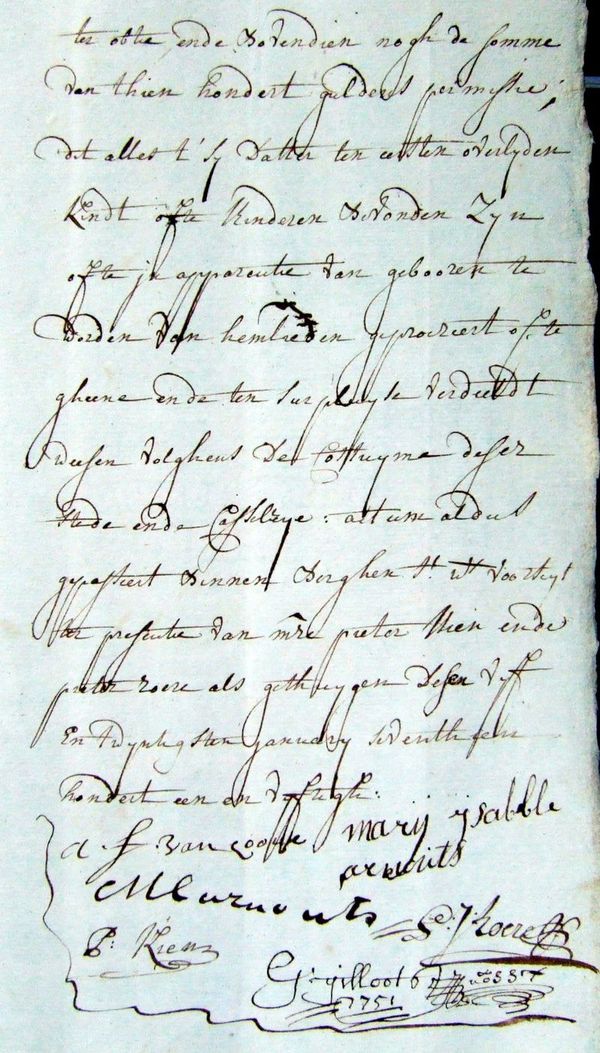 ter obtie ende bovendien nogh de somme
van thien hondert guldens permissie,
dit alles t'sy datter ten eersten overlyden
kindt ofte kinderen bevonden zyn
ofte in apparentie van gebooren te
worden van hemlieden geprocreert ofte
gheene ende ten surpluyse verdeeldt
weesen volghens de Costuyme deser
stede ende Casselrye: actum aldus
gepasseert binnen Berghen St. voorseyt
ter presentie van mre pieter Kien ende
pieter roere als gethuygen desen vyff
en twyntigsten january seventhien
hondert een en vyftigh:
mary ysabble
arnouts
M C arnouts
P: Kien
G: gilloots
1751